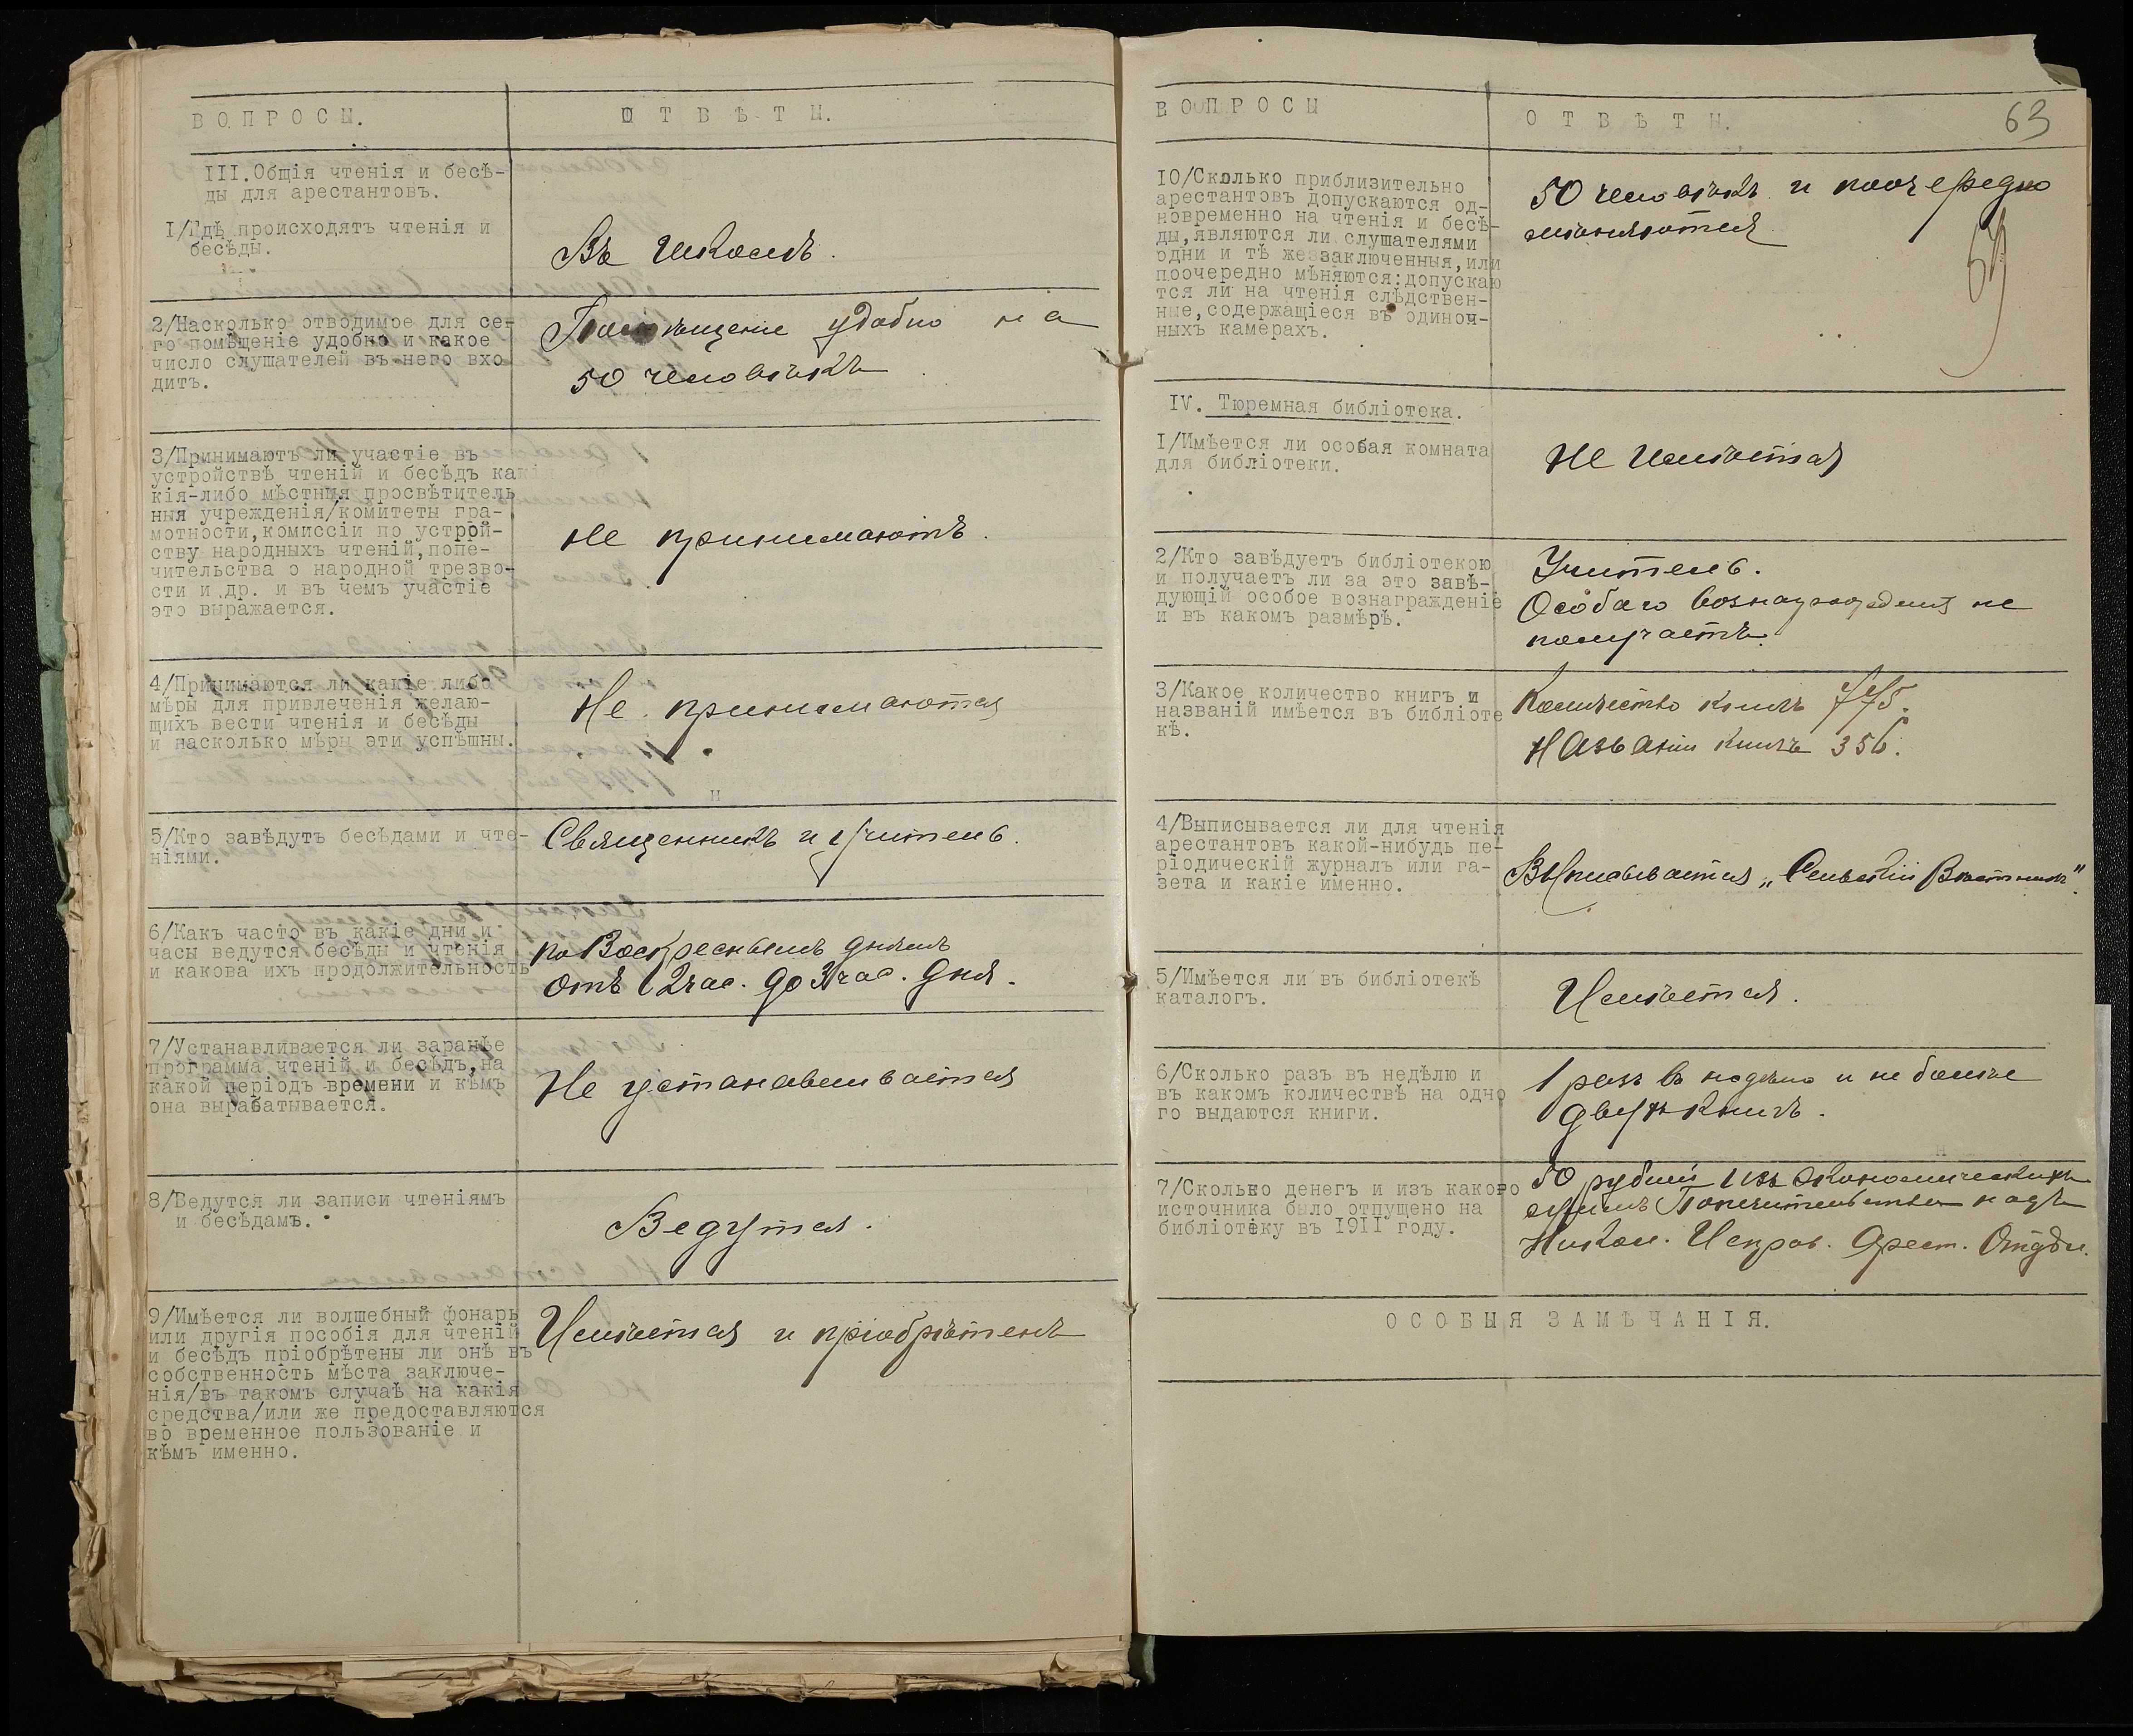 ВОПРОСЫ.
ОТВѢТЫ.
III.Общія чтенія и бесѣ-
ды для арестантовъ.
I/Гдѣ происходятъ чтенія и
бесѣды.
Въ школѣ.
2/Насколько отводимое для се-
го помѣщеніе удобно и какое
число слушателей въ него вхо
дитъ.
Помѣщеніе удобно на
50 человѣкъ
3/Принимаютъ ли участіе въ
устройствѣ чтеній и бесѣдъ какі
кія-либо мѣстныя просвѣтитель
ныя учрежденія/комитеты гра-
мотности,комиссіи по устрой-
ству народныхъ чтеній,попе-
чительства о народной трезво-
сти и др. и въ чемъ участіе
это выражается.
Не принимаютъ.
4/Принимаются ли какіе либо
мѣры для привлеченія желаю-
щихъ вести чтенія и бесѣды
и насколько мѣры эти успѣшны.
Не принимаются
5/Кто завѣдутъ бесѣдами и чте-
ніями.
Священникъ и учитель.
6/Какъ часто въ какіе дни и
часы ведутся бесѣды и чтенія
и какова ихъ продолжительность
по Воскреснымъ днямъ
отъ 12 час. до 3 час. дня.
7/Устанавливается ли заранѣе
программа чтеній и бесѣдъ,на
какой періодъ времени и кѣмъ
она вырабатывается.
Не устанавливается
8/Ведутся ли записи чтеніямъ
и бесѣдамъ.
Ведутся.
9/Имѣется ли волшебный фонарь
или другія пособія для чтеній
и бесѣдъ пріобрѣтены ли онѣ въ
собственность мѣста заключе-
нія/въ такомъ случаѣ на какія
средства/или же предоставляются
во временное пользованіе и
кѣмъ именно.
Имѣется и пріобрѣтенъ
ВОПРОСЫ
ОТВѢТЫ.
63
IO/Сколько приблизительно
арестантовъ допускаются од-
новременно на чтенія и бесѣ-
ды,являются ли слушателями
одни и тѣ же заключенныя,или
поочередно мѣняются:допускаю
тся ли на чтенія слѣдствен-
ные,содержащіеся въ одиноч-
ныхъ камерахъ.
50 человѣкъ и поочередно
мѣняются
IV. Тюремная библіотека.
I/Имѣется ли особая комната
для библіотеки.
Не имѣется
2/Кто завѣдуетъ библіотекою
и получаетъ ли за это завѣ-
дующій особое вознагражденіе
и въ какомъ размѣрѣ.
Учитель.
Особаго вознагражденія не
получаетъ.
3/Какое количество книгъ и
названій имѣется въ библіоте
кѣ.
Количество книгъ 775.
Названій книгъ 356.
4/Выписывается ли для чтенія
арестантовъ какой-нибудь пе-
ріодическій журналъ или га-
зета и какіе именно.
Выписывается „Сельскій Вѣстникъ".
5/Имѣется ли въ библіотекѣ
каталогъ.
Имѣется.
6/Сколько разъ въ недѣлю и
въ какомъ количествѣ на одно
го выдаются книги.
1 разъ въ недѣлю и не болѣе
двухъ книгъ.
7/Сколько денегъ и изъ какого
источника было отпущено на
библіотеку въ 1911 году.
50 рублей изъ экономическихъ
суммъ Попечительства надъ
Никол. Исправ. Арест. Отдѣл.
ОСОБЫЯ ЗАМѢЧАНІЯ.